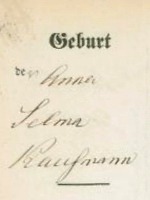 Geburt
der Anna
Selma
Kaufmann